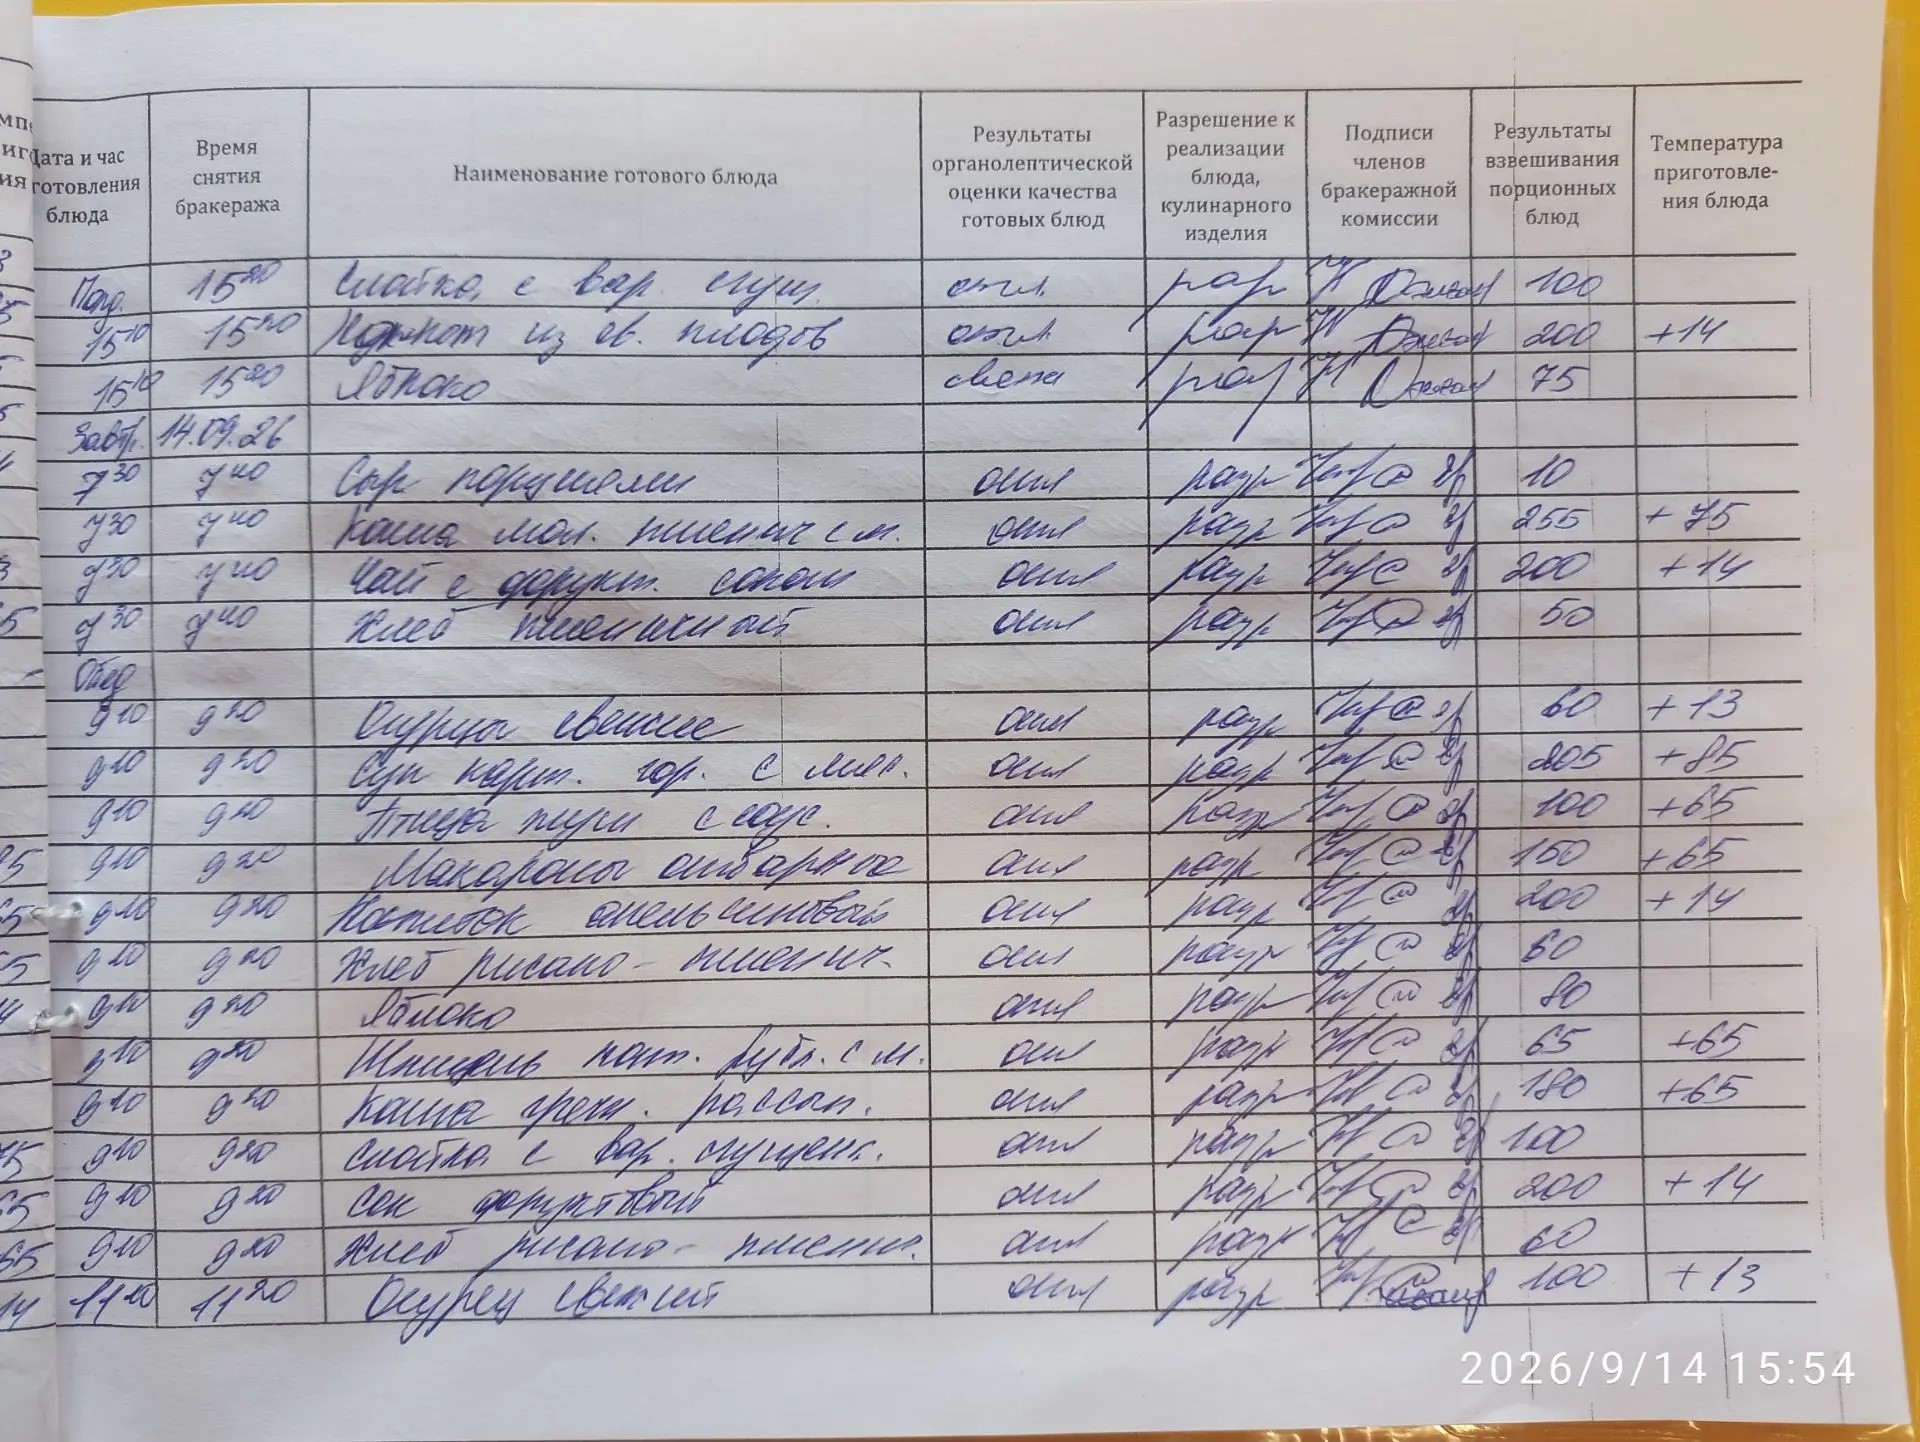 Дата и час готовления блюда | Время снятия бракеража | Наименование готового блюда | Результаты органолептической оценки качества готовых блюд | Разрешение к реализации блюда, кулинарного изделия | Подписи членов бракеражной комиссии | Результаты взвешивания порционных блюд | Температура приготовле-ния блюда
15 20 Слойка с вар. сгущ. отл. разр 100
15 10 15 20 Компот из св. плодов отл. разр 200 +14
15 10 15 20 Яблоко свежа разр 75
Завтр. 14.09.26
7 30 7 40 Сыр порциями отл разр 10
7 30 7 40 Каша мол. пшенич с м. отл разр 255 +75
7 30 7 40 Чай с фрукт. соком отл разр 200 +14
7 30 7 40 Хлеб пшеничный отл разр 50
Обед
9 10 9 20 Огурцы свежие отл разр 60 +13
9 10 9 20 Суп карт. гор. с мяс. отл разр 205 +85
9 10 9 20 Птица туш с соус. отл разр 100 +65
9 10 9 20 Макароны отварные отл разр 150 +65
9 10 9 20 Напиток апельсиновый отл разр 200 +14
9 10 9 20 Хлеб ржано-пшенич. отл разр 60
9 10 9 20 Яблоко отл разр 80
9 10 9 20 Шницель нат. рубл. с м. отл разр 65 +65
9 10 9 20 Каша греч. рассып. отл разр 180 +65
9 10 9 20 Слойка с вар. сгущенк. отл разр 100
9 10 9 20 Сок фруктовый отл разр 200 +14
9 10 9 20 Хлеб ржано-пшенич. отл разр 60
11 10 11 20 Огурец свежий отл разр 100 +13
2026/9/14 15:54